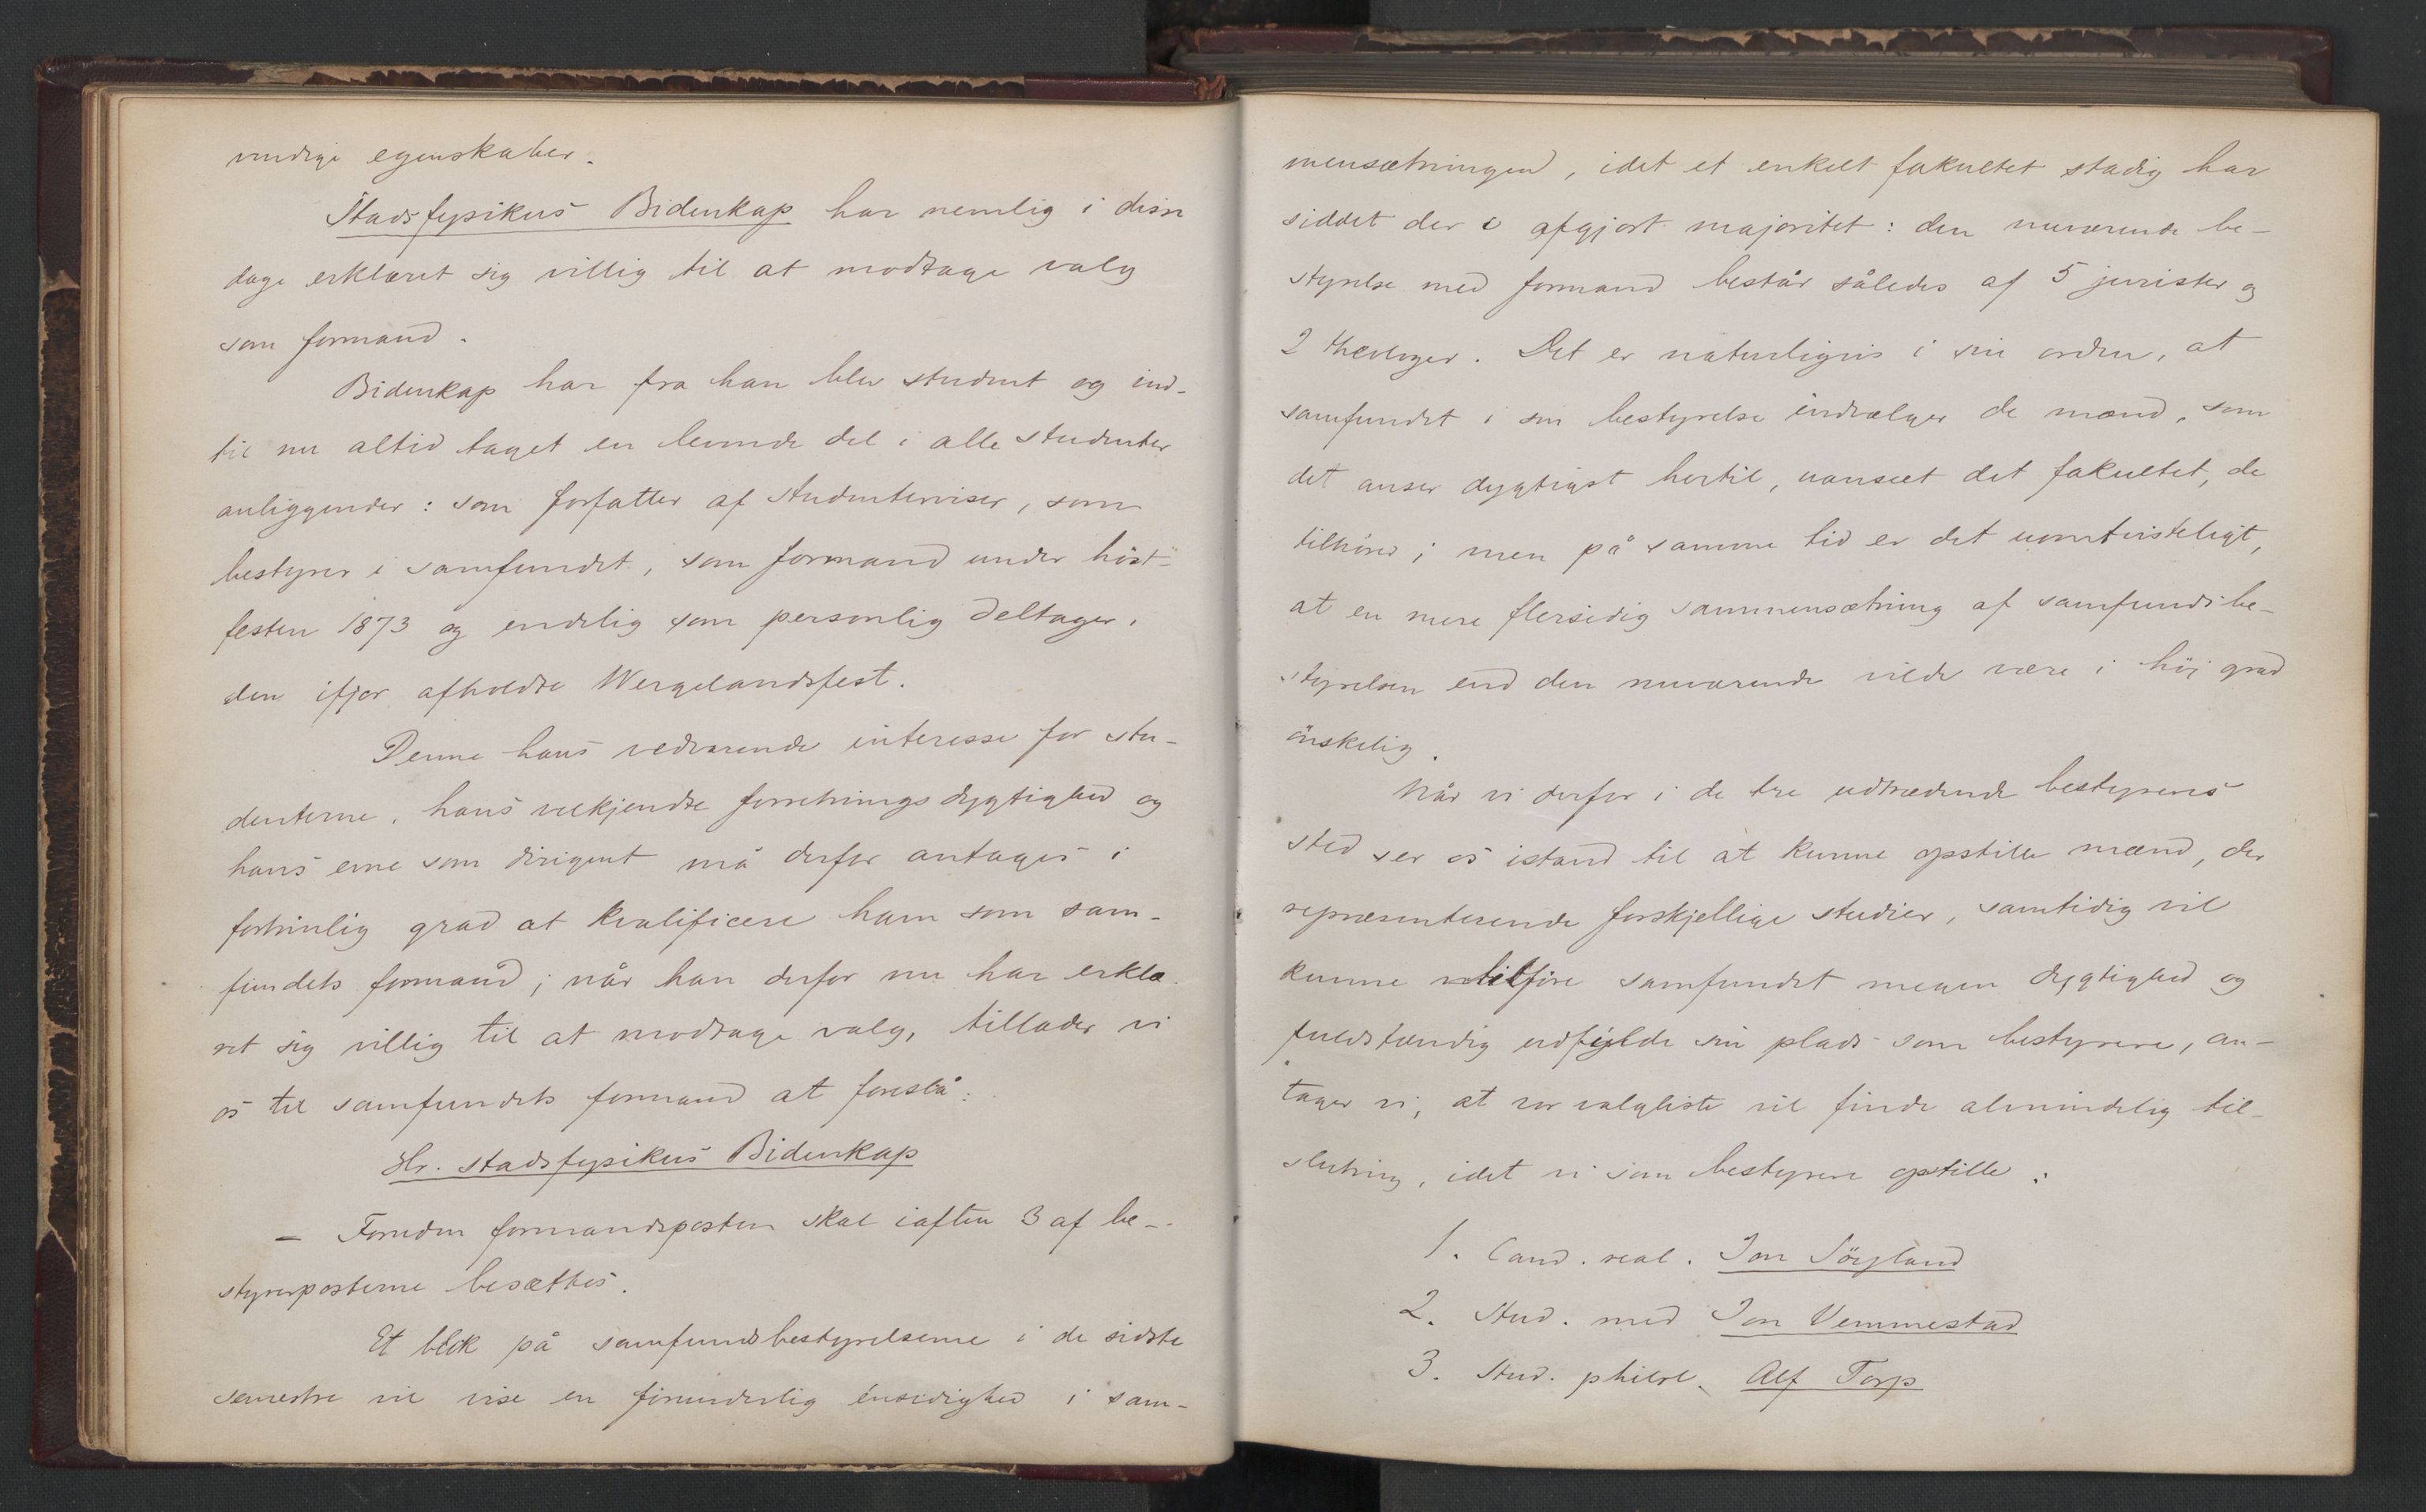 vendige egenskaber.
Stadsfysikus Bidenkap har nemlig i disse
dage erklæret sig villig til at modtage valg
som formand.
Bidenkap har fra han blev student og ind-
til nu altid taget en levende del i alle studenter
anliggender: som forfatter af studenterviser, som
bestyrer i samfundet, som formand under höst-
festen 1873 og endelig som personlig deltager i
den ifjor afholdte Wergelandsfest.
Denne hans vedvarende interesse for stu-
denterne, hans velkjendte forretningsdygtighed og
hans evne som dirigent må derfor antages i
fortrinlig grad at kvalificere ham som sam-
fundets formand; når han derfor nu har erklæ-
ret sig villig til at modtage valg, tillader vi
os til samfundets formand at foreslå:
Hr. stadsfysikus Bidenkap
– Foruden formandsposten skal iaften 3 af be-
styrerposterne besættes.
Et blik på samfundsbestyrelserne i de sidste
semestre vil vise en forunderlig énsidighed i sam-
mensætningen, idet et enkelt fakultet stadig har
siddet der i afgjort majoritet: den nuværende be-
styrelse med formand består således af 5 jurister og
2 theologer. Det er naturligvis i sin orden, at
samfundet i sin bestyrelse indvælger de mænd, som
det anser dygtigst hertil, uanseet det fakultet, de
tilhører; men på samme tid er det uomtvisteligt,
at en mere flersidig sammensætning af samfundsbe-
styrelsen end den nuværende vilde være i höj grad
önskelig.
Når vi derfor i de tre udtrædende bestyreres
sted ser os istand til at kunne opstille mænd, der
repræsenterende forskjellige studier, samtidig vil
kunne tilföre samfundet megen dygtighed og
fuldstændig udfylde sin plads som bestyrere, an-
tager vi, at vor valgliste vil finde almindelig til-
slutning, idet vi som bestyrere opstille:
1. Cand. real. Jon Sörgland
2. Stud. med Jon Vemmestad
3. Stud. philol. Alf Torp